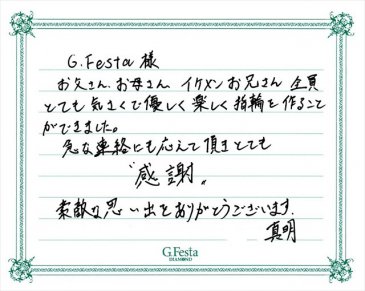 G.Festa 様
お父さん、お母さん、イケメンお兄さん 全員
とても気さくで優しく楽しく指輪を作ること
ができました。
急な連絡にも応えて頂きとても
“感謝”
素敵な思い出をありがとうございます.
真明
G.Festa
DIAMOND